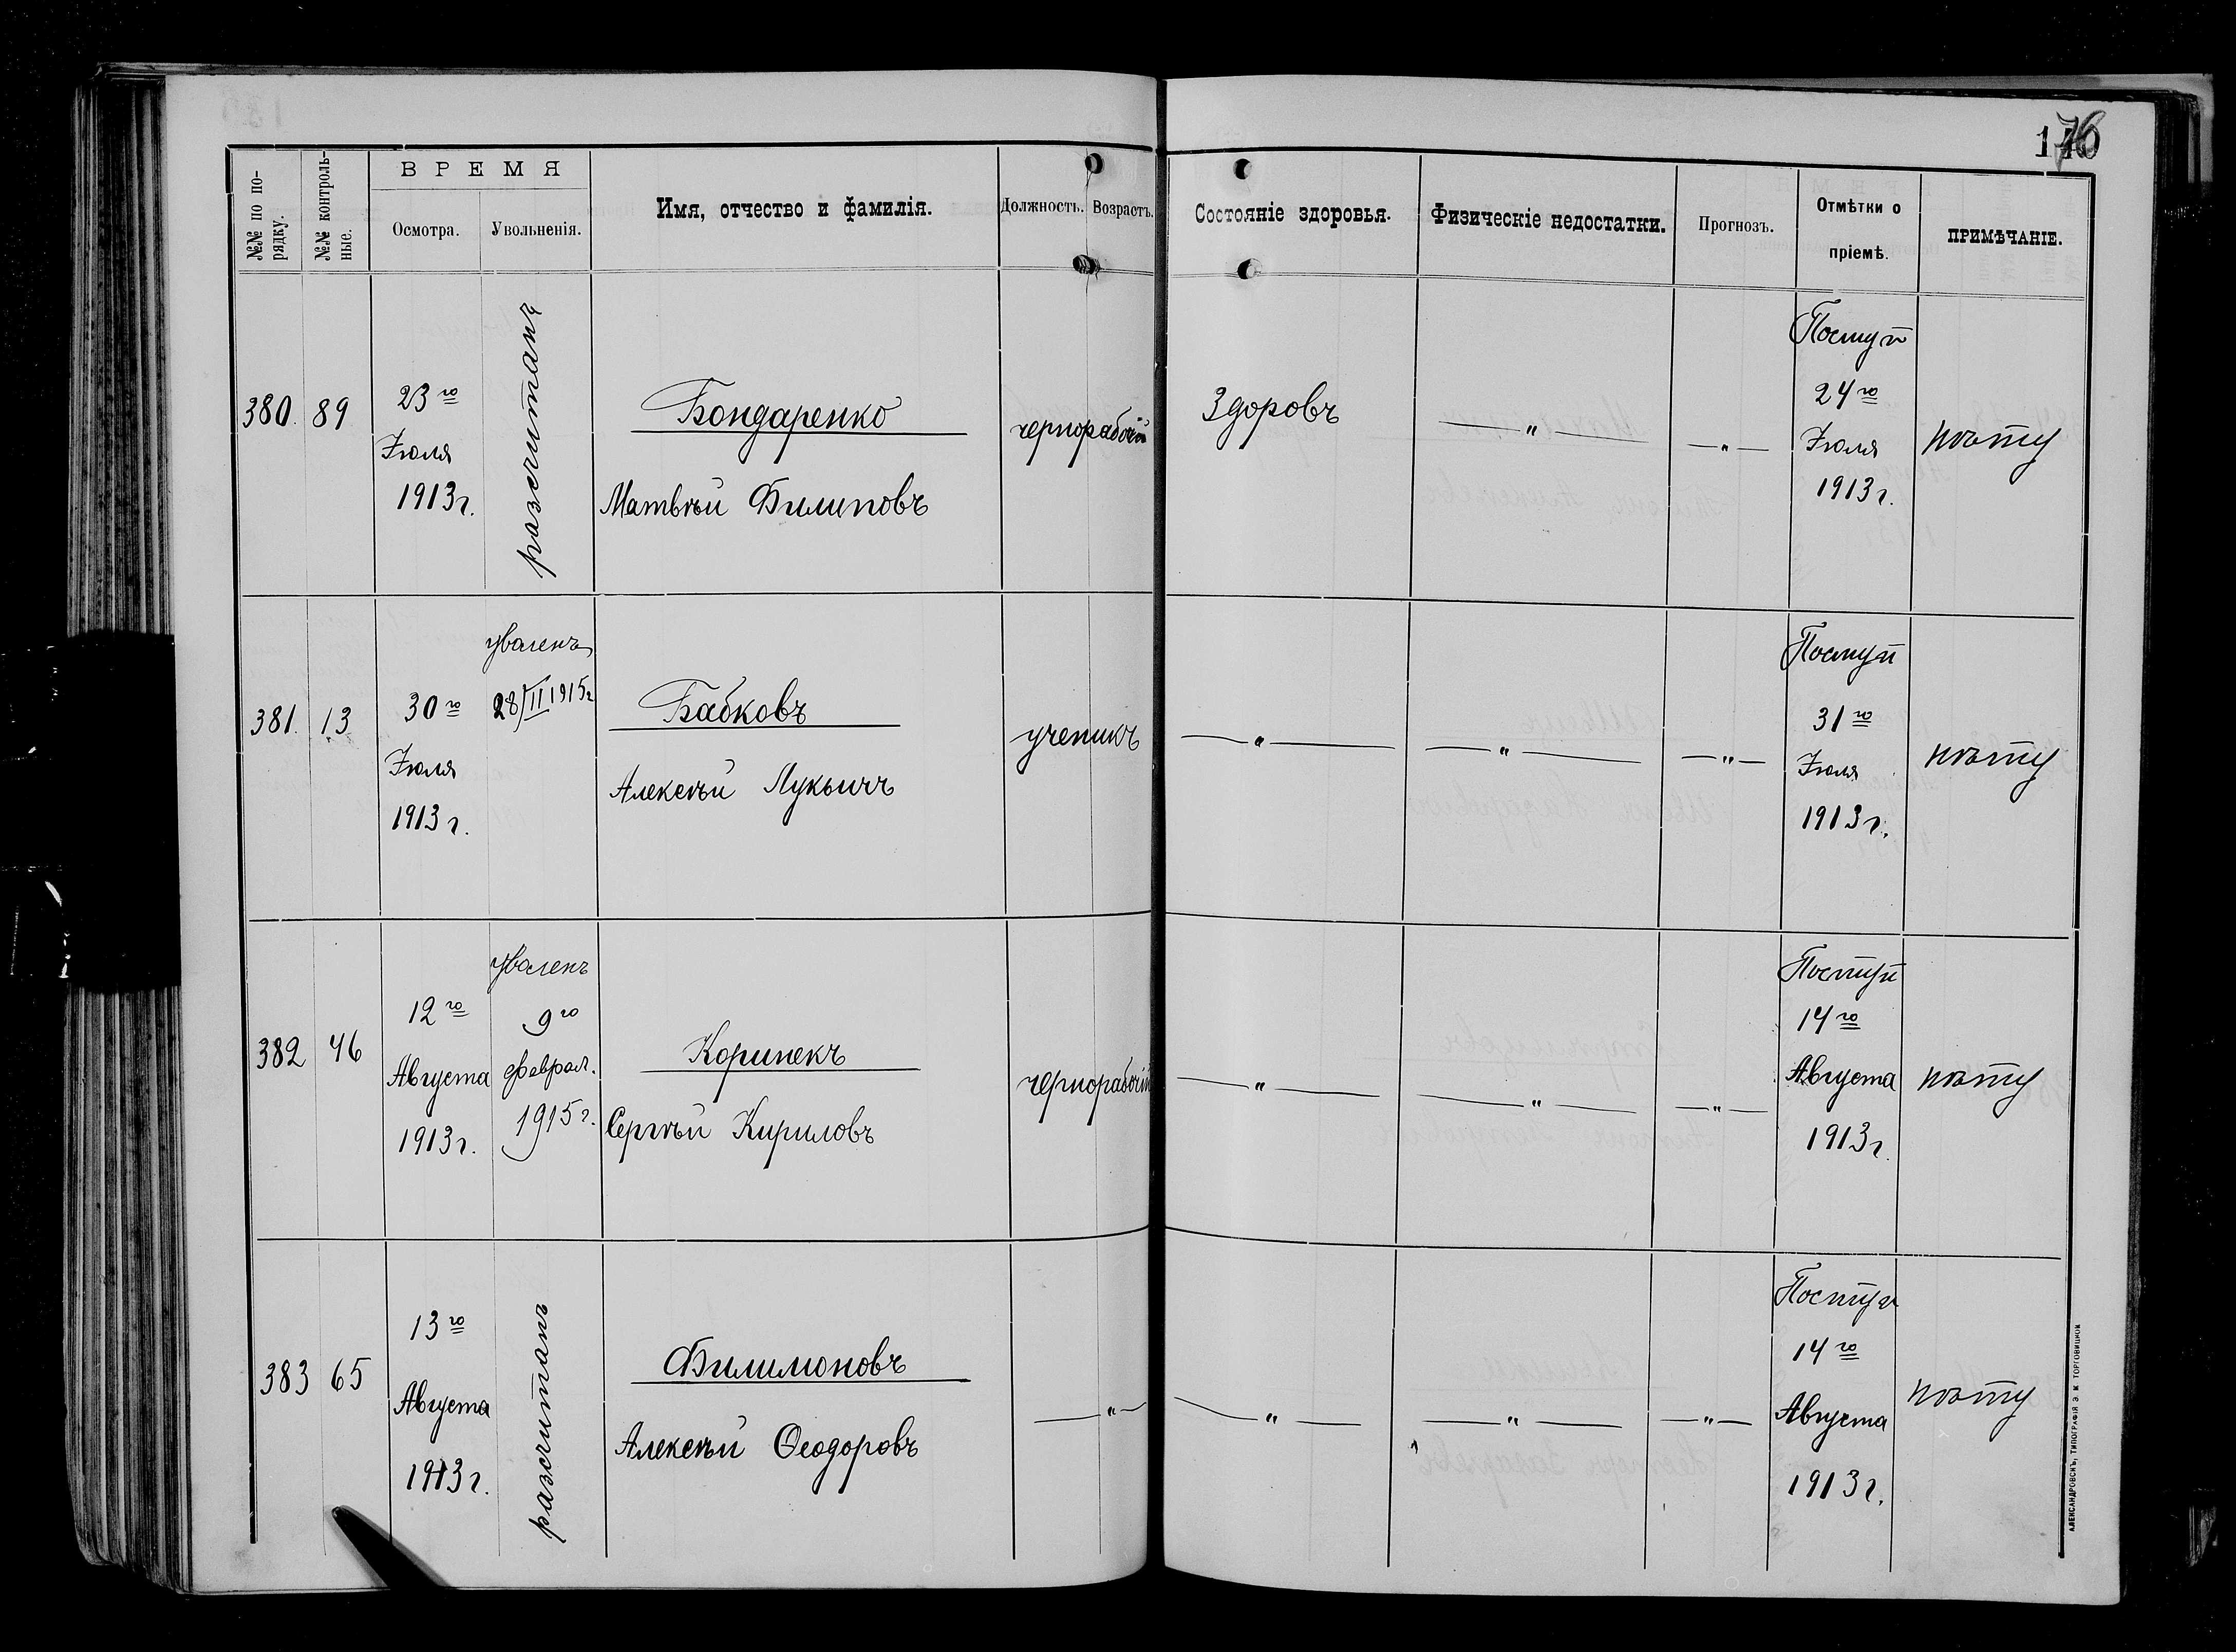 ВРЕМЯ
№№ по по-
рядку.
№№ контроль-
ные.
Осмотра.
Увольненія.
Имя, отчество и фамилія.
Должность.
Возрастъ.
Состояніе здоровья.
Физическіе недостатки.
Прогнозъ.
Отмѣтки о
пріемѣ.
ПРИМѢЧАНІЕ.
380.
89
23го
Іюля
1913г.
разсчитанъ
Бондаренко
Матвѣй Филиповъ
чернорабочій
Здоровъ
— " —
— " —
Поступ
24го
Іюля
1913г.
381.
13
30го
Іюля
1913г.
уволенъ
28/II 1915г
Бабковъ
Алексѣй Лукьичъ
ученикъ
— " —
— " —
— " —
Поступ
31го
Іюля
1913г.
382
46
12го
Августа
1913г.
уволенъ
9го
феврал.
1915г.
Коринекъ
Сергѣй Кириловъ
чернорабочій
— " —
— " —
— " —
Поступ
14го
Августа
1913г.
383
65
13го
Августа
1913г.
разсчитанъ
Филимоновъ
Алексѣй Ѳеодоровъ
— " —
— " —
— " —
— " —
Поступ
14го
Августа
1913г.
АЛЕКСАНДРОВСКЪ, ТИПОГРАФІЯ Э. И. ТОРГОВИЦКІЙ